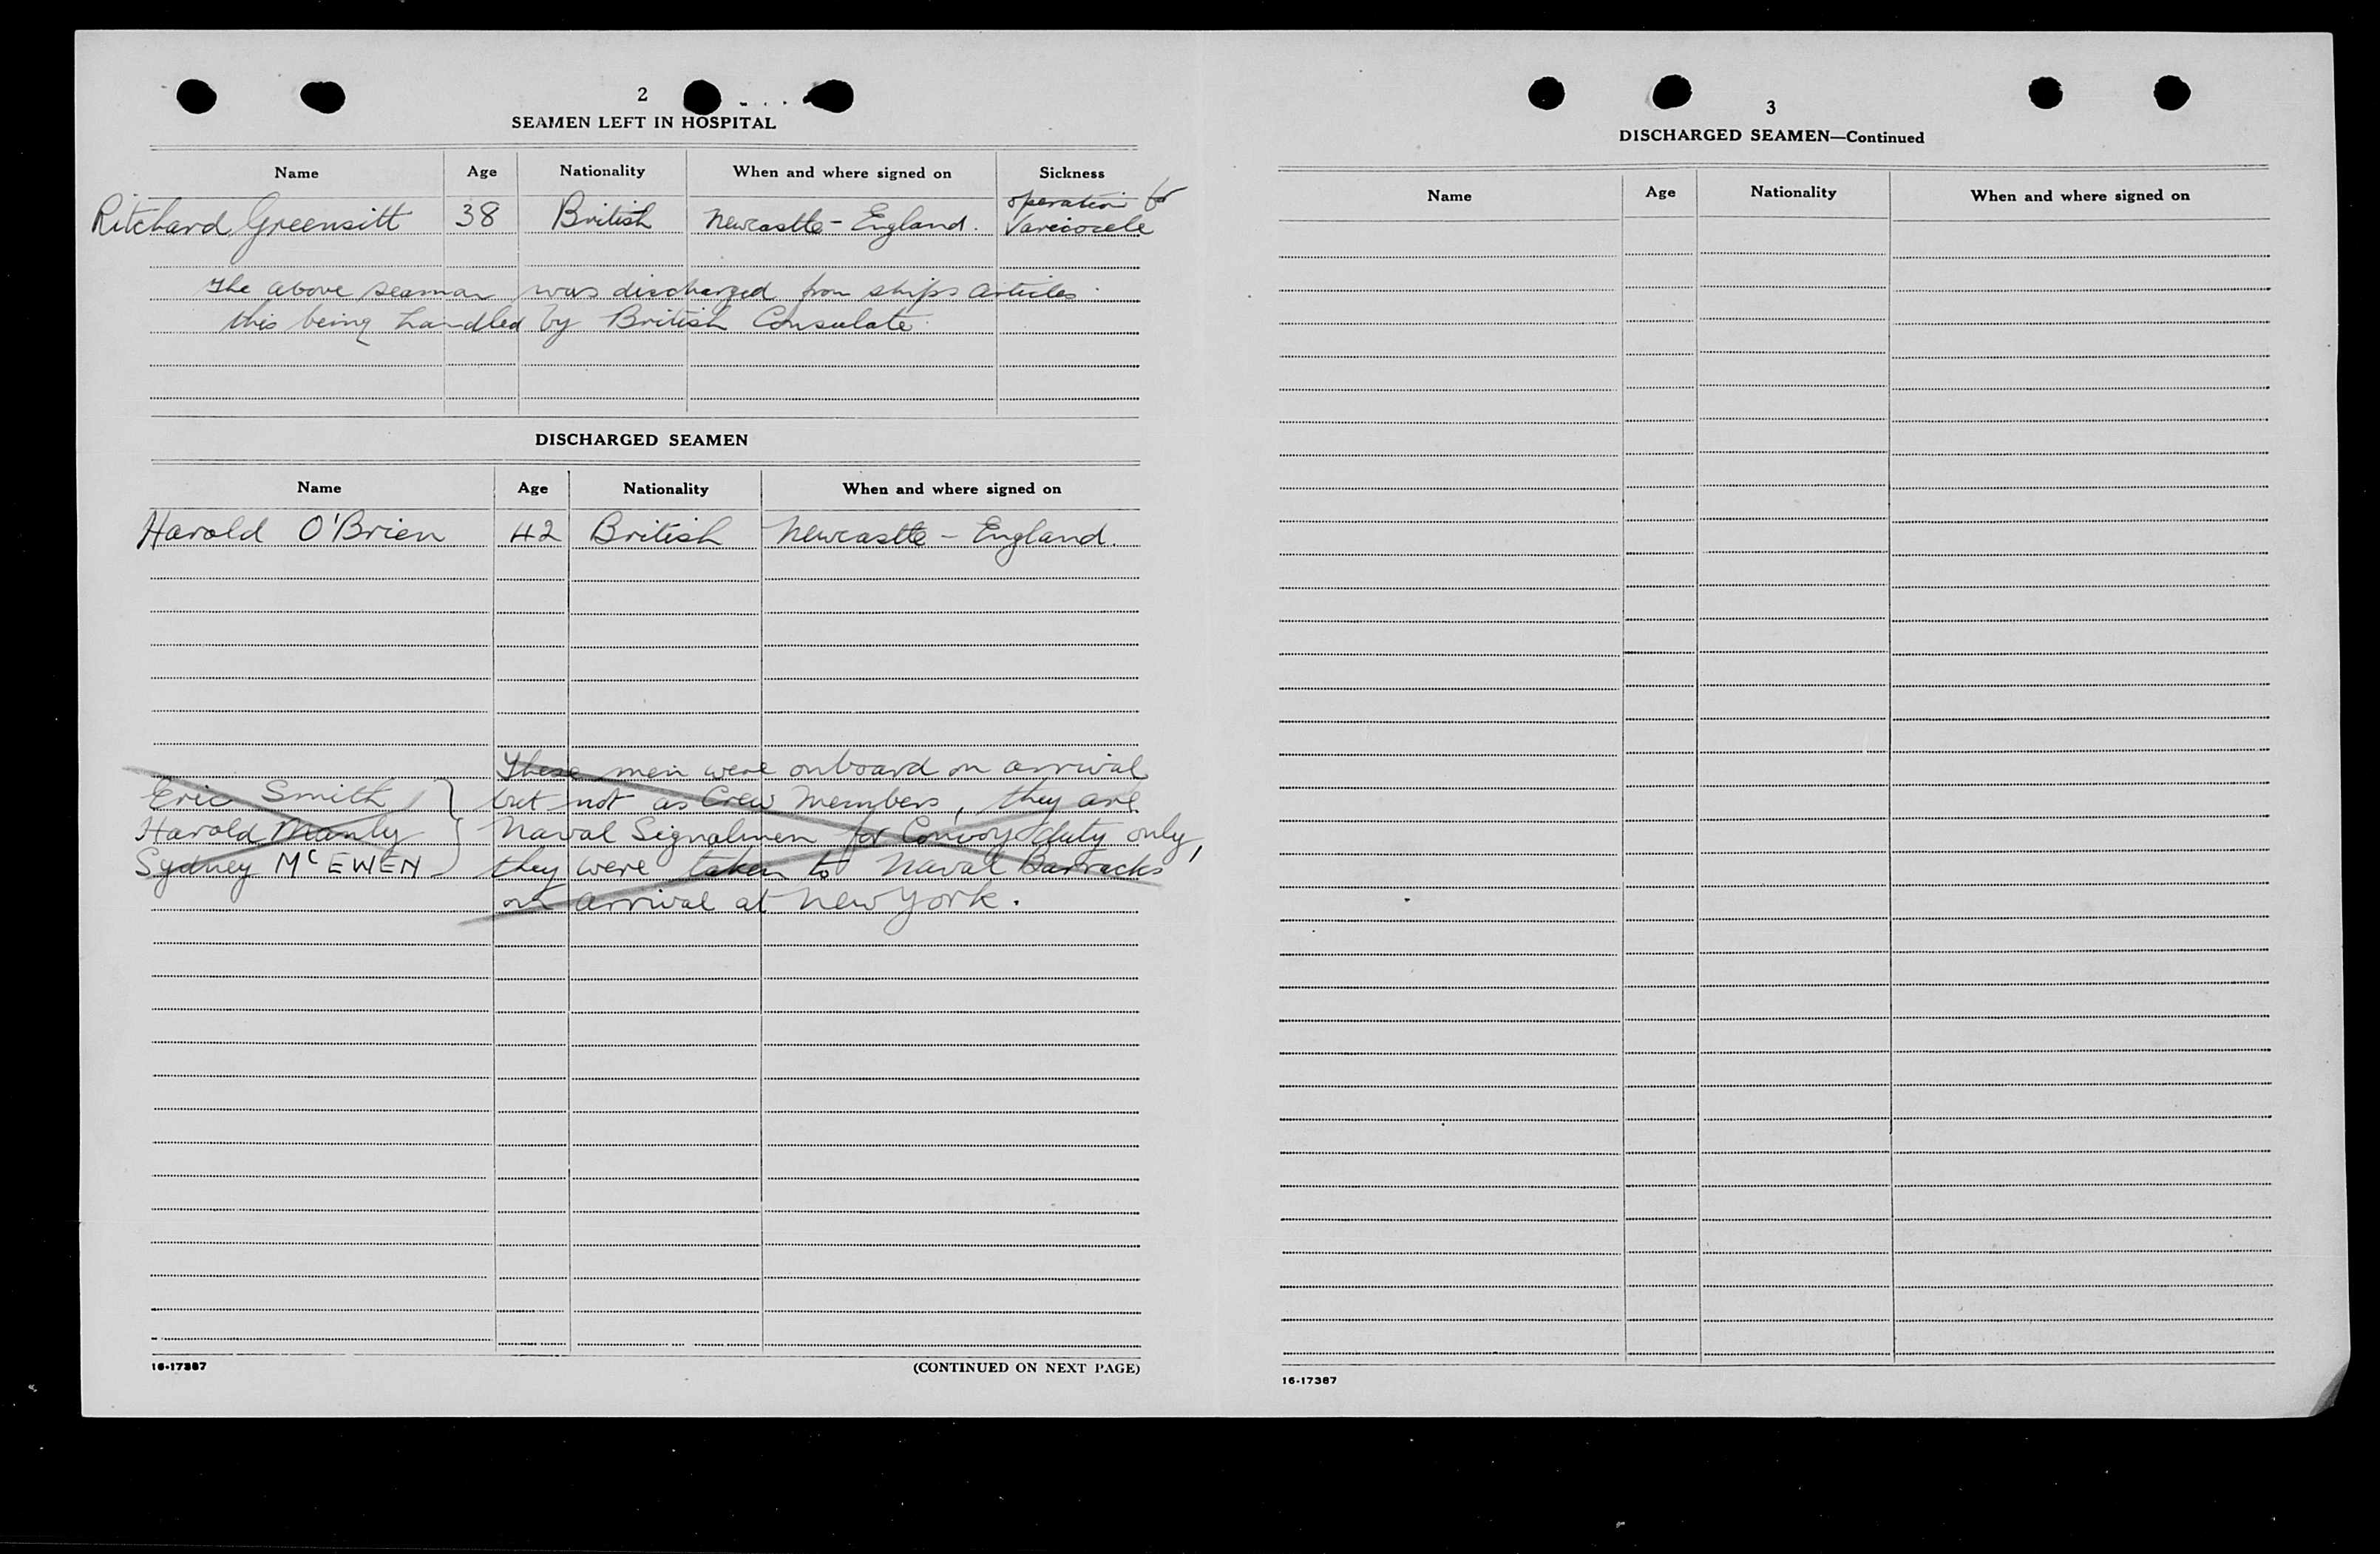 2
SEAMEN LEFT IN HOSPITAL
Name Age Nationality When and where signed on Sickness
operation for
Ritchard Greensitt 38 British Newcastle - England. Varicocele
The above seaman was discharged from ships articles
this being handled by British Consulate.
DISCHARGED SEAMEN
Name Age Nationality When and where signed on
Harold O'Brien 42 British Newcastle - England.
These men were onboard on arrival
Eric Smith but not as Crew Members, they are
Harold Manly Naval Signalmen for Convoy duty only,
Sydney McEWEN they were taken to Naval Barracks
on arrival at New York.
16-17387 (CONTINUED ON NEXT PAGE)
3
DISCHARGED SEAMEN—Continued
Name Age Nationality When and where signed on
16-17387